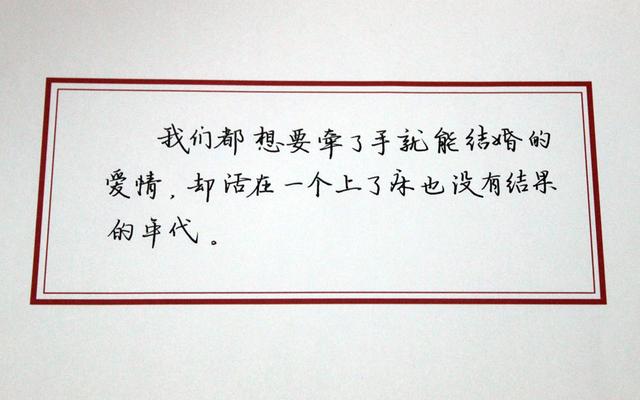 我们都想要牵了手就能结婚的
爱情，却活在一个上了床也没有结果
的年代。